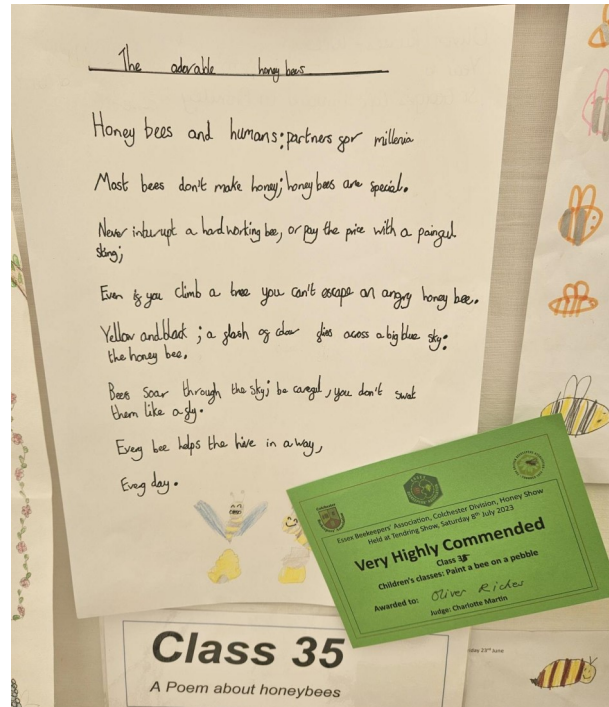 The adorable honey bees
Honey bees and humans: partners for millenia
Most bees don't make honey; honey bees are special.
Never interupt a hard working bee, or pay the price with a painful
sting;
Even if you climb a tree you can't escape an angry honey bee.
Yellow and black ; a flash of colour flies across a big blue sky:
the honey bee.
Bees soar through the sky; be careful, you don't swat
them like a fly.
Every bee helps the hive in a way,
Every day.
Colchester
Essex Beekeepers' Association, Colchester Division, Honey Show
Held at Tendring Show, Saturday 8th July 2023
Very Highly Commended
Class 35
Children's classes: Paint a bee on a pebble
Awarded to: Oliver
Judge: Charlotte Martin
Class 35
A Poem about honeybees
23rd June